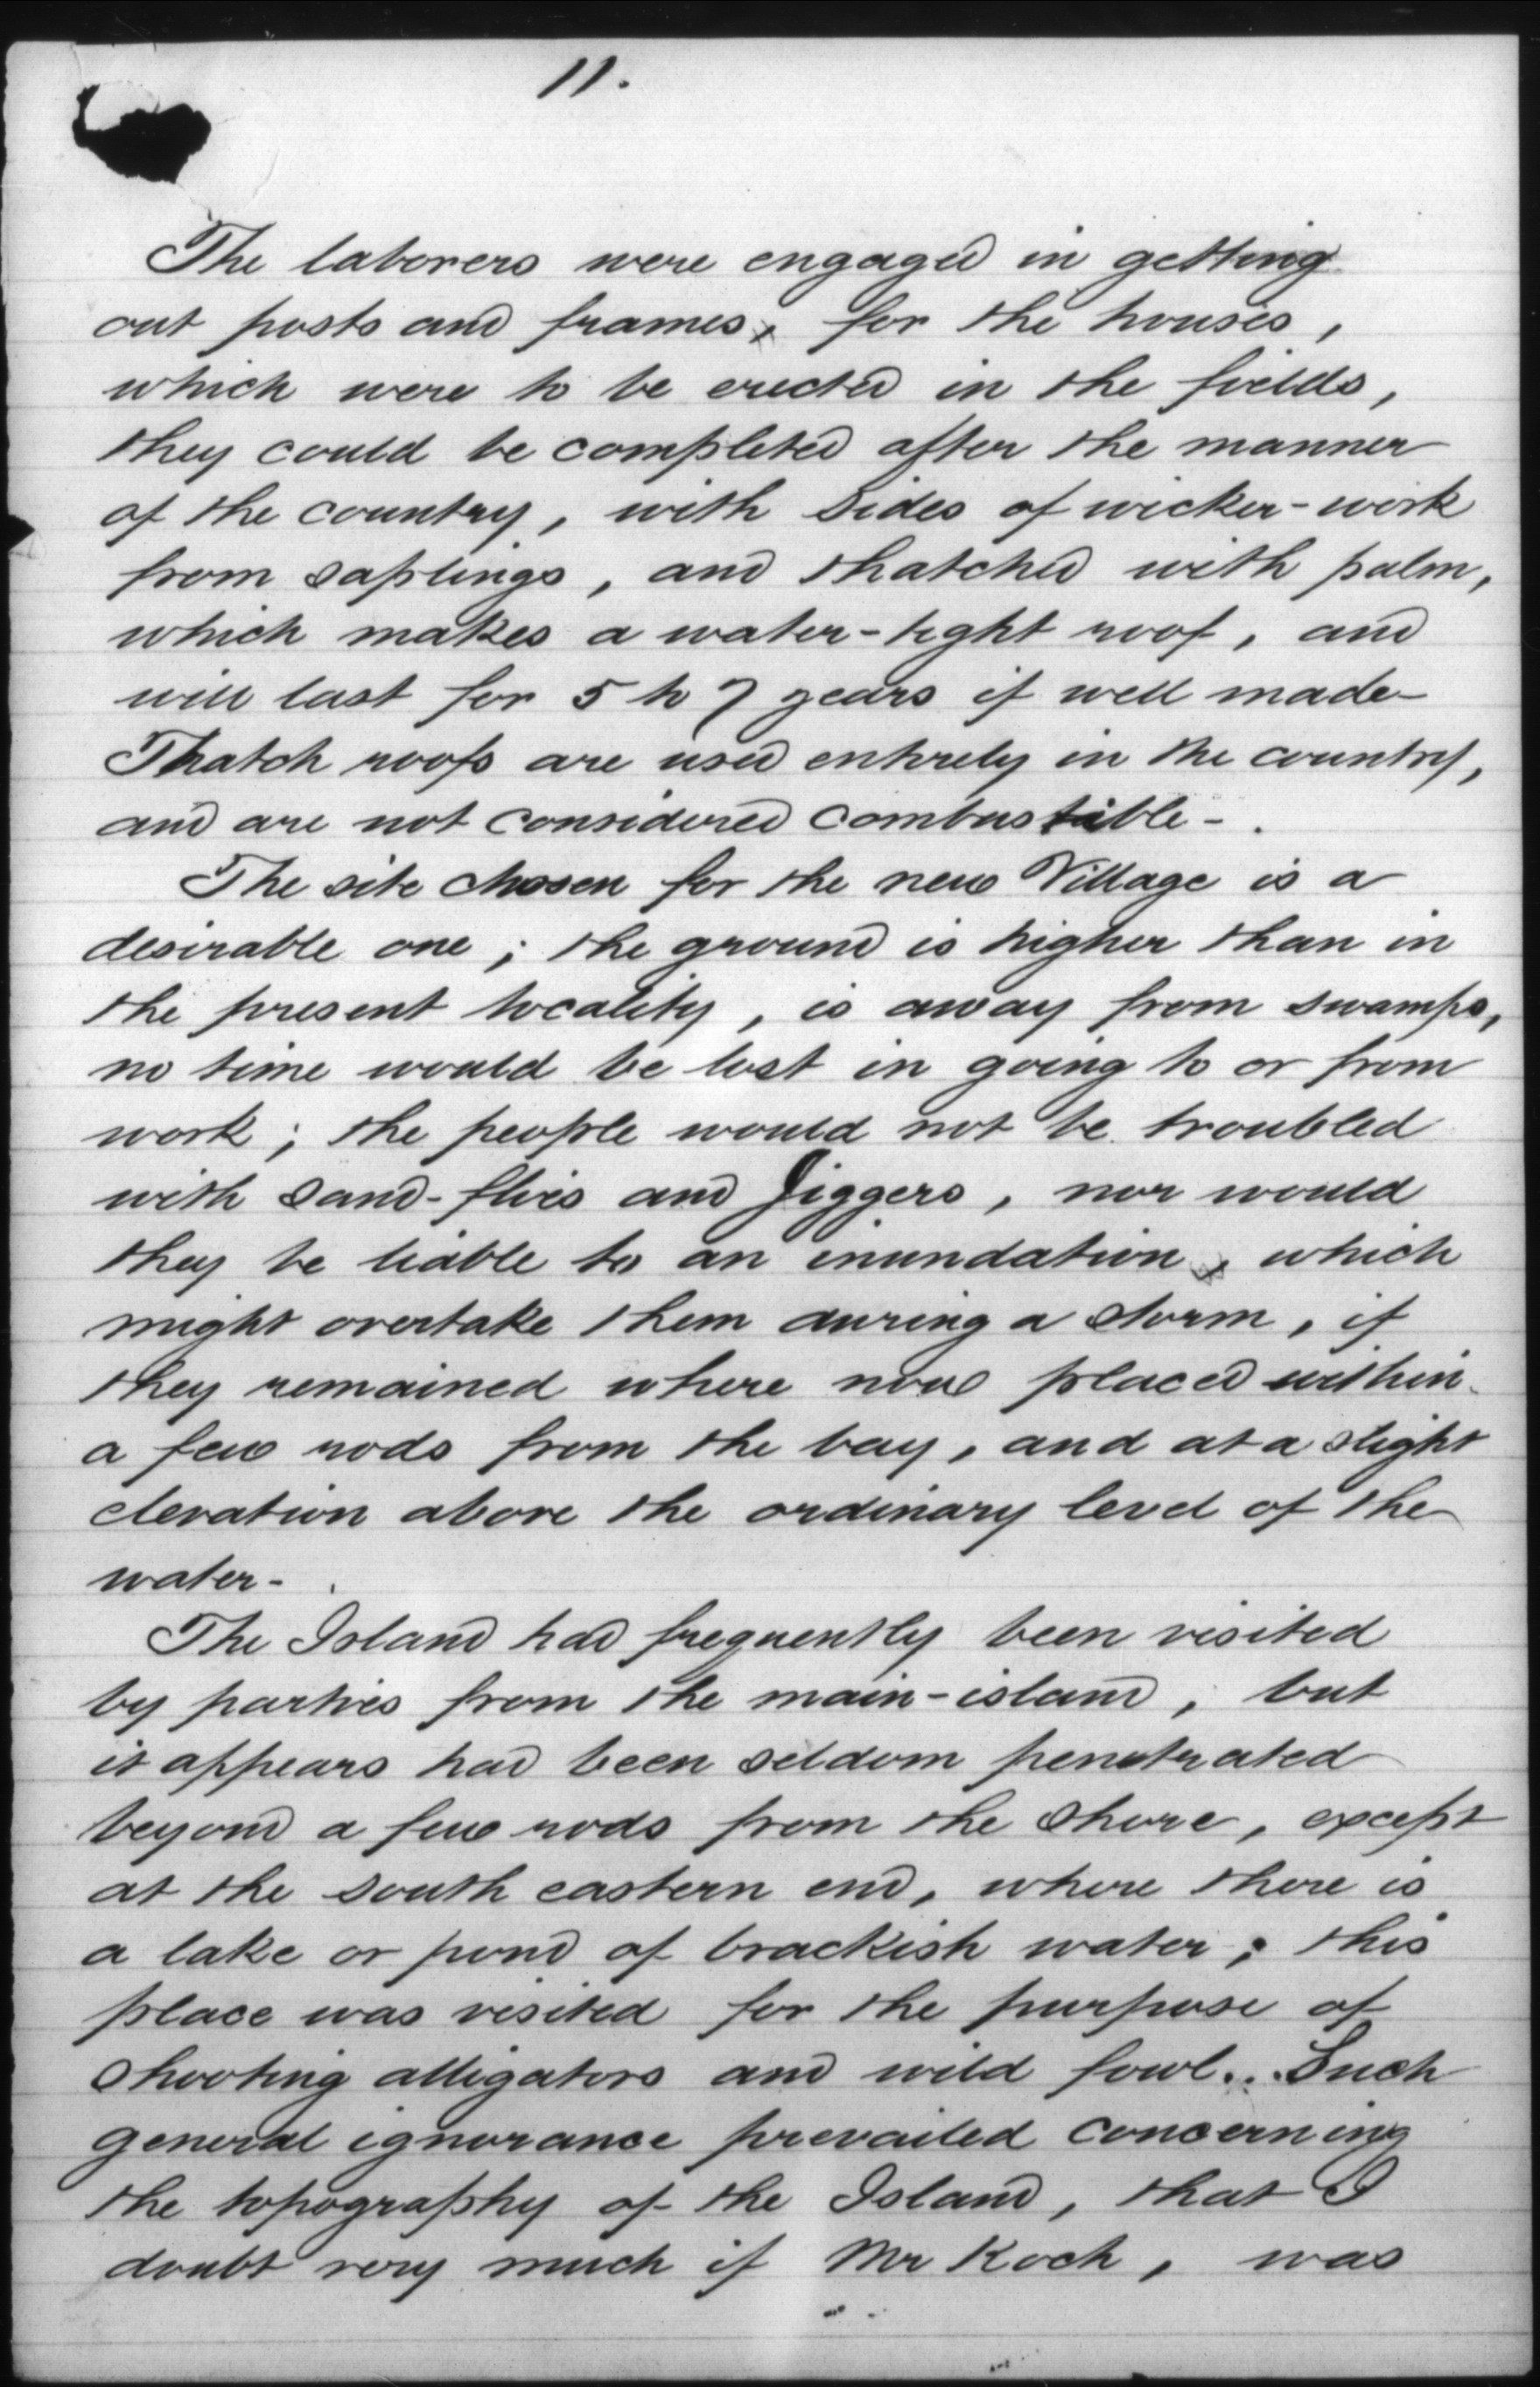 11.
The laborers were engaged in getting
out posts and frames, for the houses,
which were to be erected in the fields,
they could be completed after the manner
of the country, with sides of wicker-work
from saplings, and thatched with palm,
which makes a water-tight roof, and
will last for 5 to 7 years if well made-
Thatch roofs are used entirely in the country,
and are not considered combustible-.
The site chosen for the new Village is a
desirable one; the ground is higher than in
the present locality, is away from swamps,
no time would be lost in going to or from
work; the people would not be troubled
with sand-flies and Jiggers, nor would
they be liable to an inundation, which
might overtake them during a storm, if
they remained where now placed within
a few rods from the bay, and at a slight
elevation above the ordinary level of the
water-.
The Island had frequently been visited
by parties from the main-island, but
it appears had been seldom penetrated
beyond a few rods from the shore, except
at the south eastern end, where there is
a lake or pond of brackish water; this
place was visited for the purpose of
shooting alligators and wild fowl... Such
general ignorance prevailed concerning
the topography of the Island, that I
doubt very much if Mr Koch, was